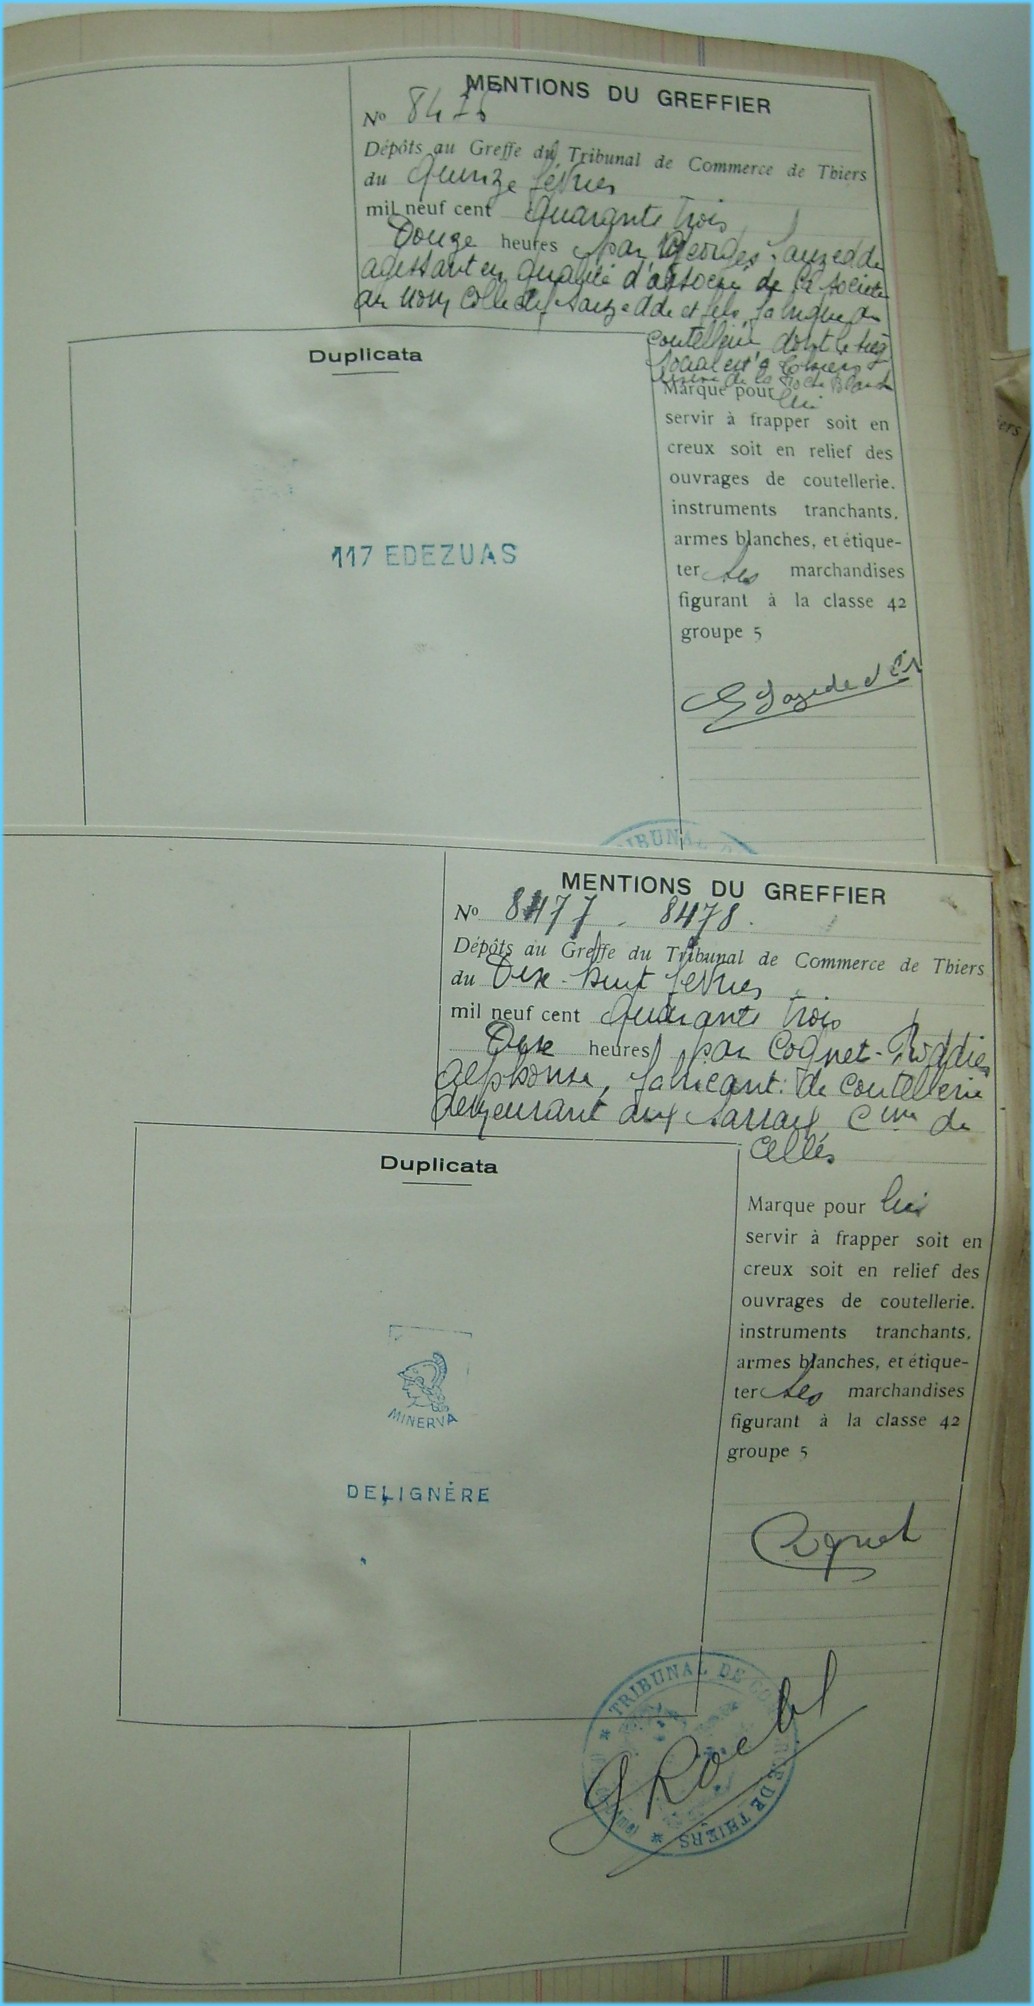 MENTIONS DU GREFFIER
No 8476
Dépôts au Greffe du Tribunal de Commerce de Thiers
du Quinze février
mil neuf cent quarante trois
Douze heures par Georges Sauzedde
agissant en qualité d'associé de la Société
au nom collectif Sauzedde et fils, fabrique de
coutellerie dont le siège
social est à Thiers
Marque pour lui
servir à frapper soit en
creux soit en relief des
ouvrages de coutellerie.
instruments tranchants.
armes blanches, et étique-
ter ses marchandises
figurant à la classe 42
groupe 5
Duplicata
117 EDEZUAS
IBUNAL
MENTIONS DU GREFFIER
No 8477 - 8478.
Dépôts au Greffe du Tribunal de Commerce de Thiers
du Dix-huit février
mil neuf cent quarante trois
Onze heures par Cognet-
Alphonse, fabricant de coutellerie
demeurant aux Sarraix Cne de
Celles
Duplicata
Marque pour lui
servir à frapper soit en
creux soit en relief des
ouvrages de coutellerie.
instruments tranchants.
armes blanches, et étique-
ter ses marchandises
figurant à la classe 42
groupe 5
MINERVA
DELIGNÈRE
Cognet
TRIBUNAL DE COMMERCE DE THIERS